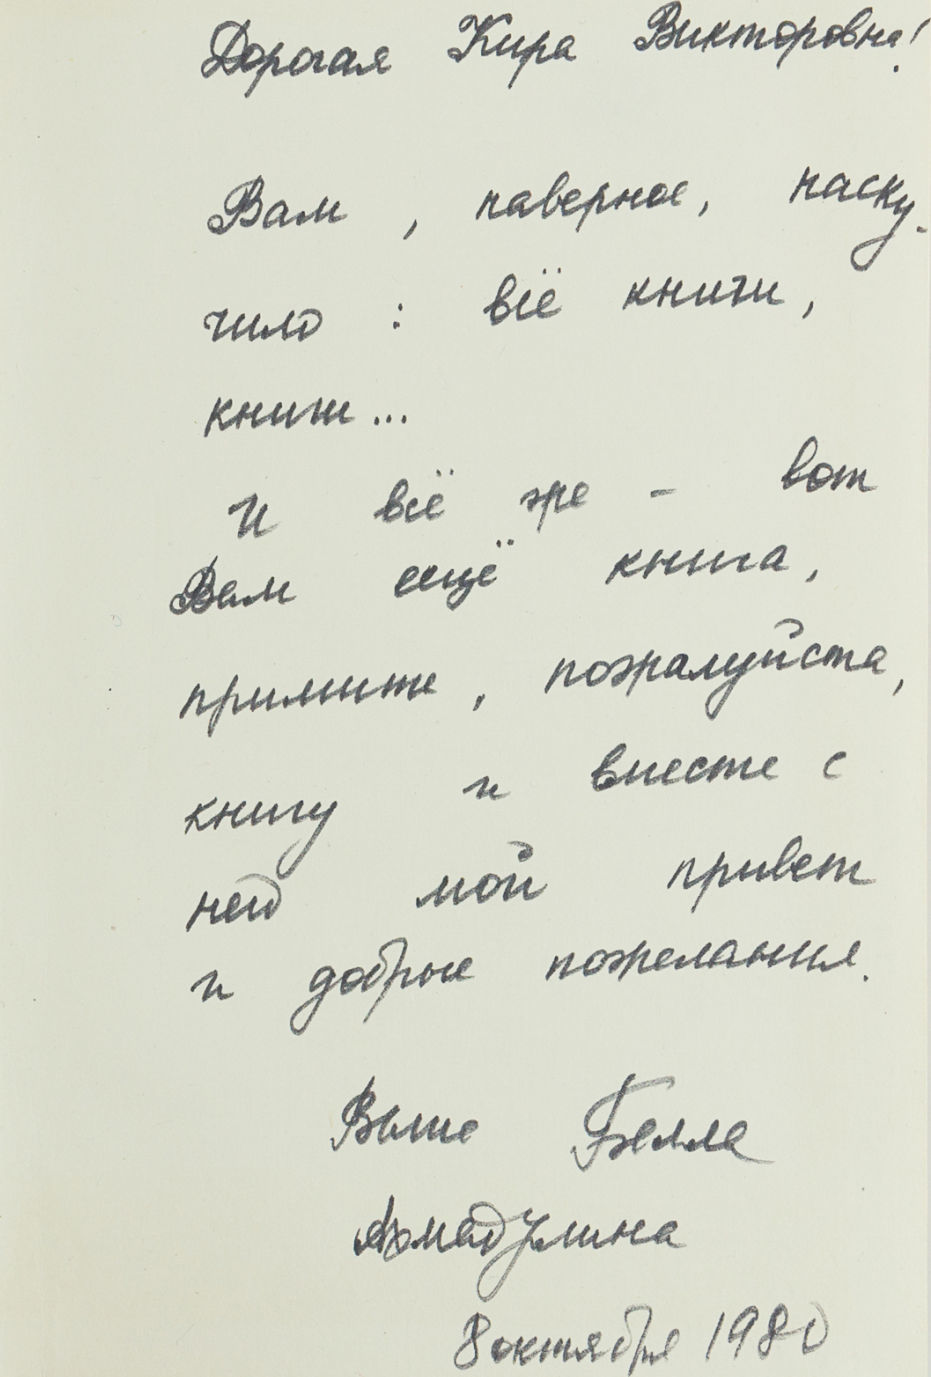 Дорогая Кира Викторовна!
Вам, наверное, наску-
чило: всё книги,
книги...
И всё же - вот
Вам ещё книга,
примите, пожалуйста,
книгу и вместе с
ней мой привет
и добрые пожелания.
Ваша Белла
Ахмадулина
8 октября 1980